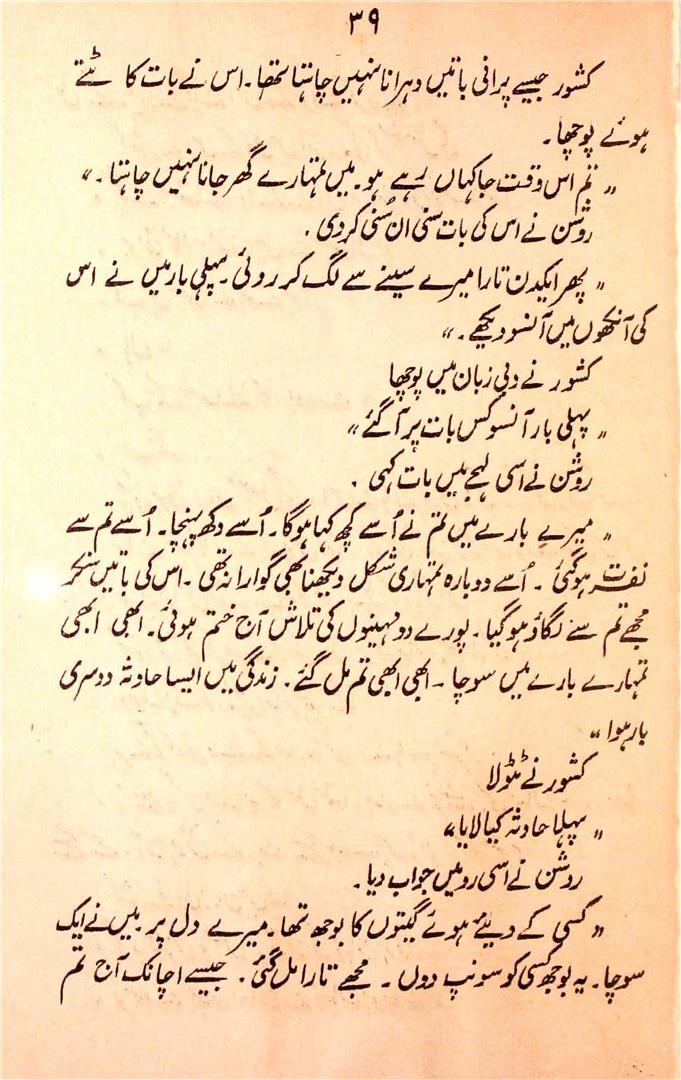 ۳۹
کشور جیسے پرانی باتیں دہرانا نہیں چاہتا تھا۔ اس نے بات کاٹتے
ہوئے پوچھا۔
„ تم اس وقت جا کہاں رہے ہو۔ میں تمہارے گھر جانا نہیں چاہتا۔ “
روشن نے اس کی بات سنی ان سُنی کر دی ۔
„ پھر ایکدن تارا میرے سینے سے لگ کر روئی۔ پہلی بار میں نے اس
کی آنکھوں میں آنسو دیکھے۔ “
کشور نے دبی زبان میں پوچھا
„ پہلی بار آنسو کس بات پر آگئے “
روشن نے اسی لہجے میں بات کہی ۔
„ میرے بارے میں تم نے اُسے کچھ کہا ہوگا۔ اُسے دکھ پہنچا۔ اُسے تم سے
نفرت ہوگئی ۔ اُسے دوبارہ تمہاری شکل دیکھنا بھی گوارا نہ تھی ۔ اس کی باتیں سنکر
مجھے تم سے لگاؤ ہو گیا ۔ پورے دو مہینوں کی تلاش آج ختم ہوئی۔ ابھی ابھی
تمہارے بارے میں سوچا ۔ ابھی ابھی تم مل گئے ۔ زندگی میں ایسا حادثہ دوسری
بار ہوا “
کشور نے ٹٹولا
„ پہلا حادثہ کیا لایا “
روشن نے اسی رو میں جواب دیا ۔
„ کسی کے دیئے ہوئے گیتوں کا بوجھ تھا۔ میرے دل پر ۔ میں نے ایک
سوچا۔ یہ بوجھ کسی کو سونپ دوں ۔ مجھے تارا مل گئی ۔ جیسے اچانک آج تم